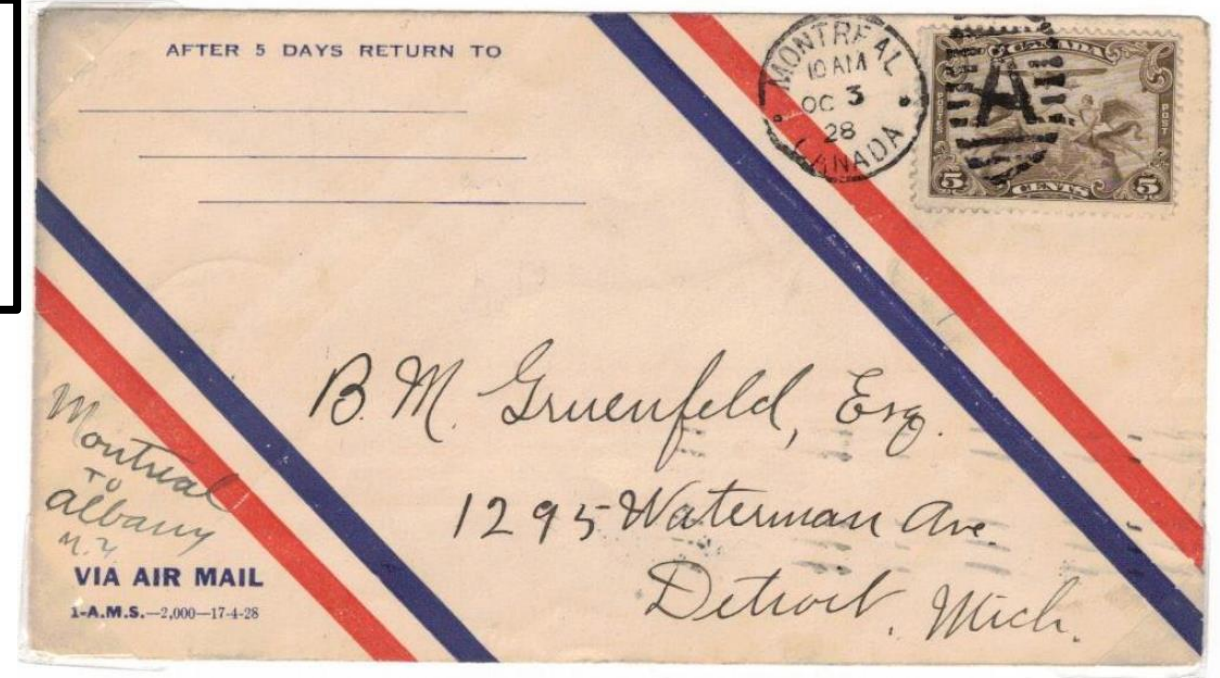 AFTER 5 DAYS RETURN TO
MONTREAL
10 AM
OC 3
28
CANADA
A
CANADA
POSTES
POST
5 CENTS 5
B. M. Gruenfeld, Esq.
1295 Waterman Ave.
Detroit, Mich.
Montreal
TO
Albany
N.Y
VIA AIR MAIL
1-A.M.S.—2,000—17-4-28